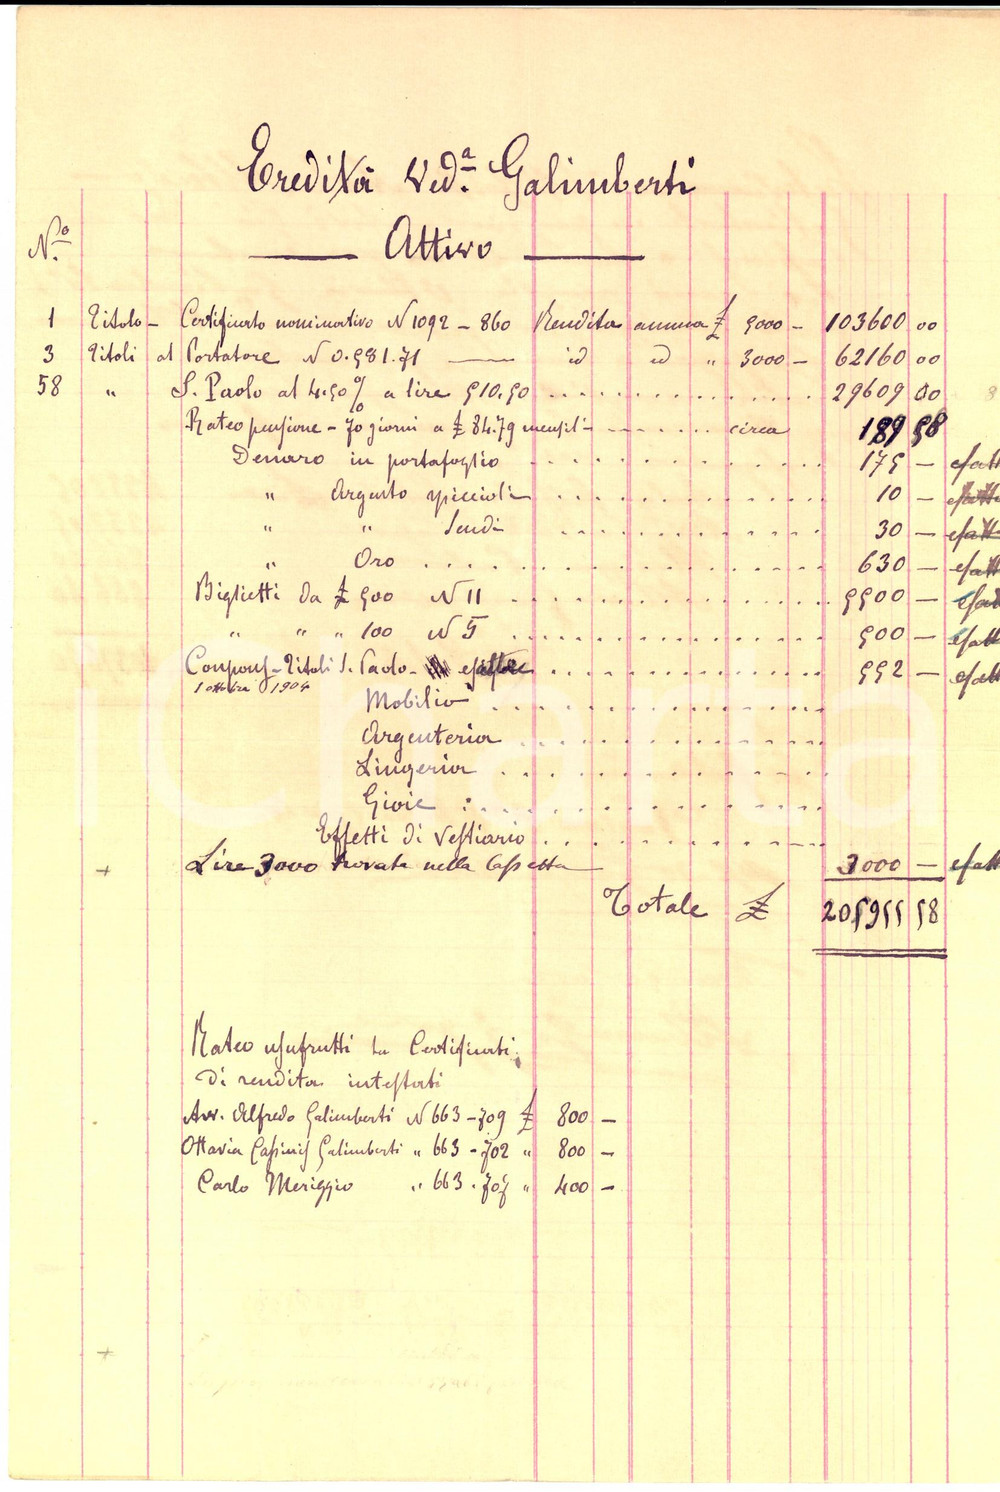 Eredità Ved.a Galimberti
N.o
Attivo
1 Titolo - Certificato nominativo N 1092 - 860 Rendita annua £ 5000 - 103600 00
3 Titoli al Portatore N 0.581.71 —— id id " 3000 - 62160 00
58 " S. Paolo al 4.50% a lire 510.50 .......... 29609 00
Rateo pensione - 70 giorni a £ 84.75 mensili ....... circa 189 58
Denaro in portafoglio .......... 175 — esatt
" Argento spiccioli .......... 10 — esatt
" " Scudi .......... 30 — esatt
" Oro .......... 630 — esatt
Biglietti da £ 500 N 11 .......... 5500 — esatt
" " " 100 N 5 .......... 500 — esatt
Coupons - Titoli S. Paolo - esatte .......... 552 — esatt
1 ottobre 1904
Mobilio ..........
Argenteria ..........
Lingeria ..........
Gioie ..........
Effetti di vestiario ..........
+ Lire 3000 trovate nella Cassetta 3000 — esatt
Totale £ 205955 58
Rateo usufrutti su Certificati
di rendita intestati
Avv. Alfredo Galimberti N 663 - 709 £ 800 —
Ottavia Cassinis Galimberti " 663 - 702 " 800 —
Carlo Meriggio " 663 - 707 " 400 —
+